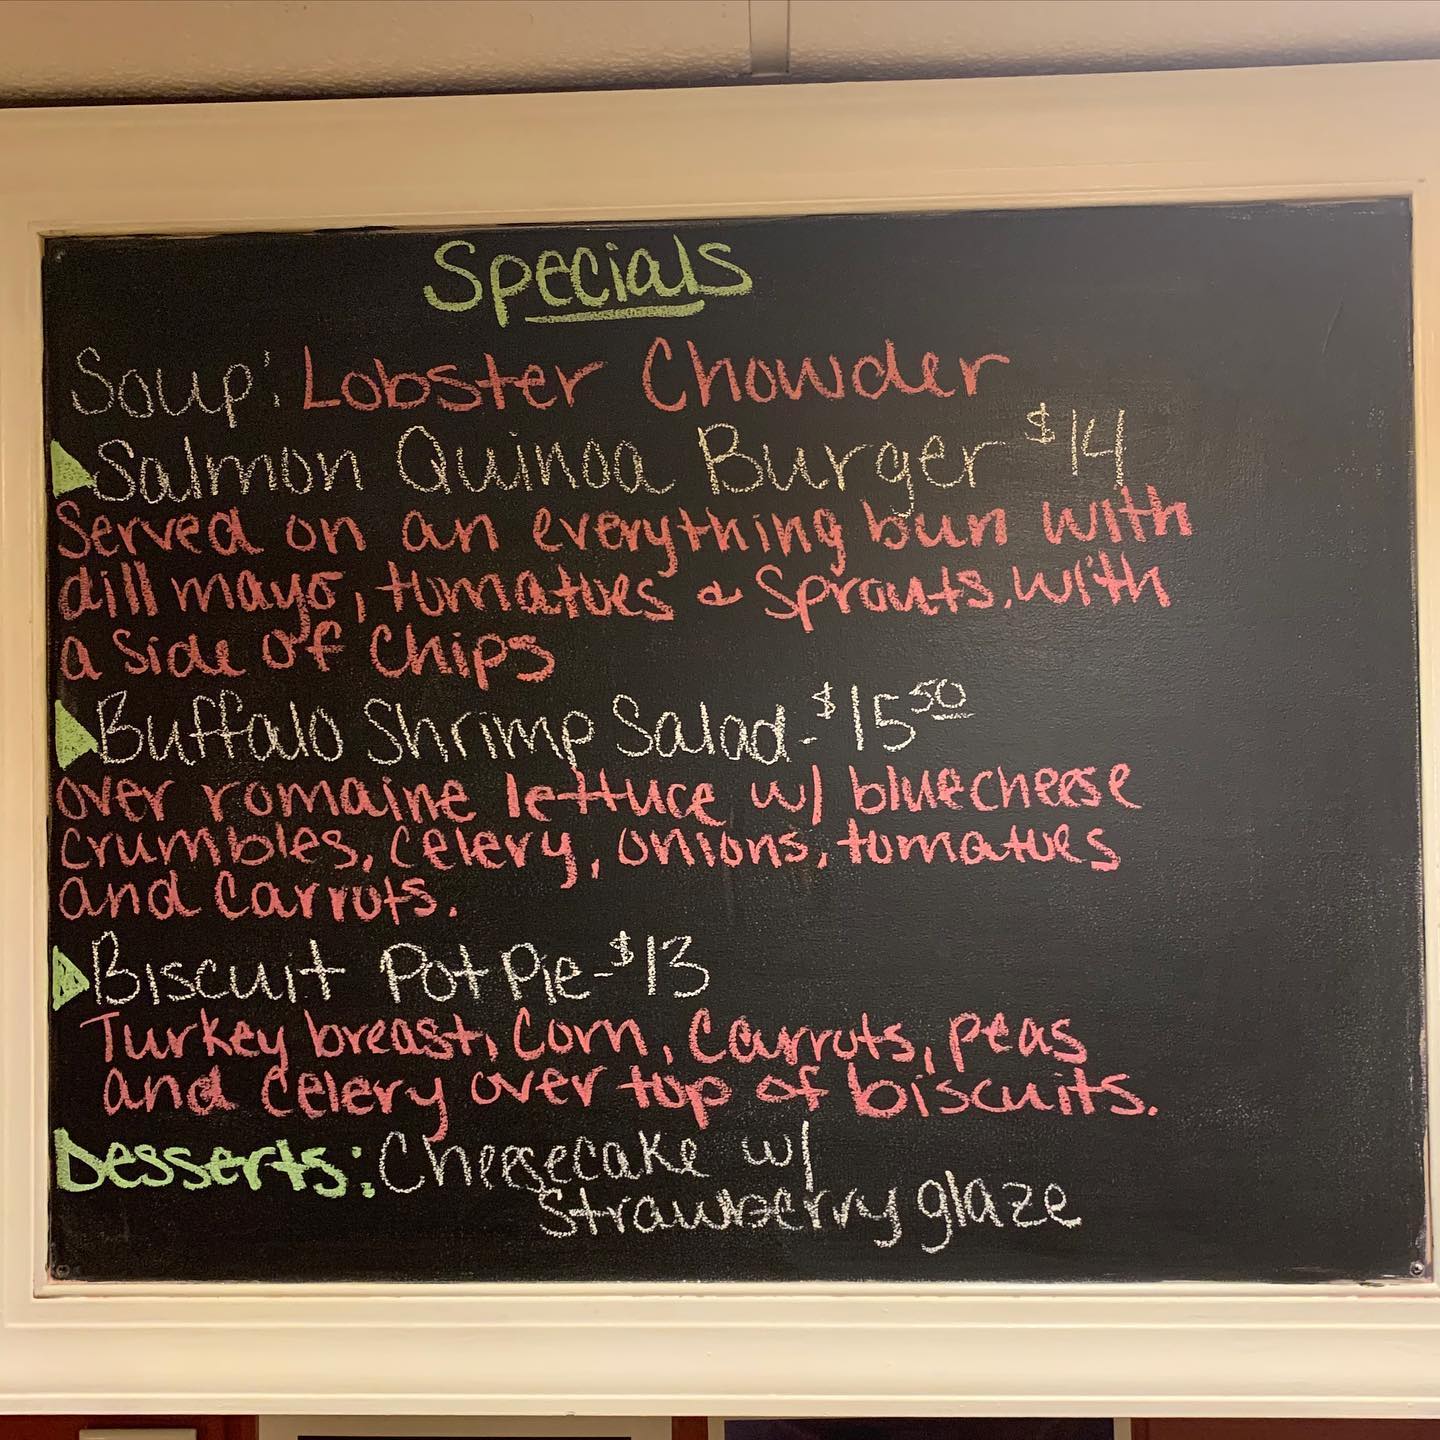 Specials
Soup: Lobster Chowder
Salmon Quinoa Burger $14
Served on an everything bun with
dill mayo, tomatoes & Sprouts. with
a side of chips
Buffalo Shrimp Salad - $15 50
over romaine lettuce w/ bluecheese
crumbles, celery, onions, tomatoes
and carrots.
Biscuit Pot Pie - $13
Turkey breast, corn, carrots, peas
and celery over top of biscuits.
Desserts: Cheesecake w/
strawberry glaze